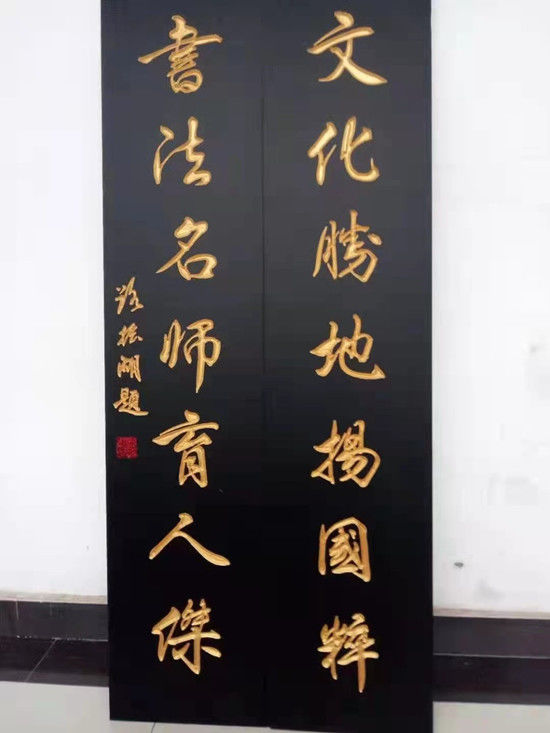 文化勝地揚國粹
書法名師育人傑
路振湖題